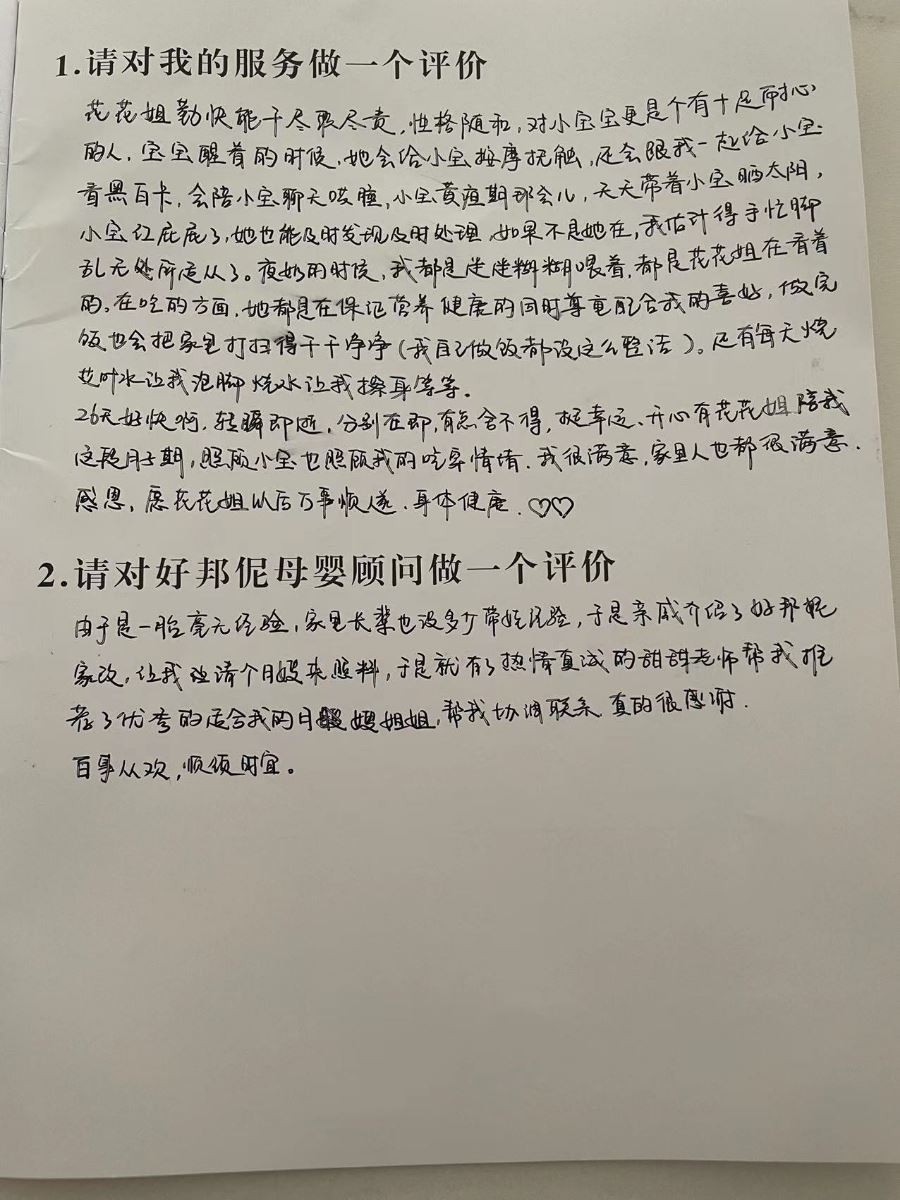 1.请对我的服务做一个评价
花花姐勤快能干尽职尽责,性格随和,对小宝宝更是个有十足耐心
的人,宝宝醒着的时候,她会给小宝按摩抚触,还会跟我一起给小宝
看黑白卡,会陪小宝聊天哄睡,小宝黄疸期那会儿,天天带着小宝晒太阳,
小宝红屁屁了,她也能及时发现及时处理,如果不是她在,我估计得手忙脚
乱无处所适从了。夜奶的时候,我都是迷迷糊糊喂着,都是花花姐在看着
的,在吃的方面,她都是在保证营养健康的同时尊重配合我的喜好,做完
饭也会把家里打扫得干干净净(我自己做饭都没这么整洁)。还有每天烧
艾叶水让我泡脚烧水让我擦身等等。
26天好快啊,转瞬即逝,分别在即,有点舍不得,挺幸运、开心有花花姐陪我
这段月子期,照顾小宝也照顾我的吃穿情绪.我很满意,家里人也都很满意.
感恩,愿花花姐以后万事顺遂、身体健康.♡♡
2.请对好邦伲母婴顾问做一个评价
由于是一胎毫无经验,家里长辈也没多少带娃经验,于是亲戚介绍了好邦妮
家政,让我请个月嫂来照料,于是就有了热情真诚的甜甜老师帮我推
荐了优秀的适合我的月嫂姐姐,帮我协调联系.真的很感谢.
百事从欢,顺颂时宜。